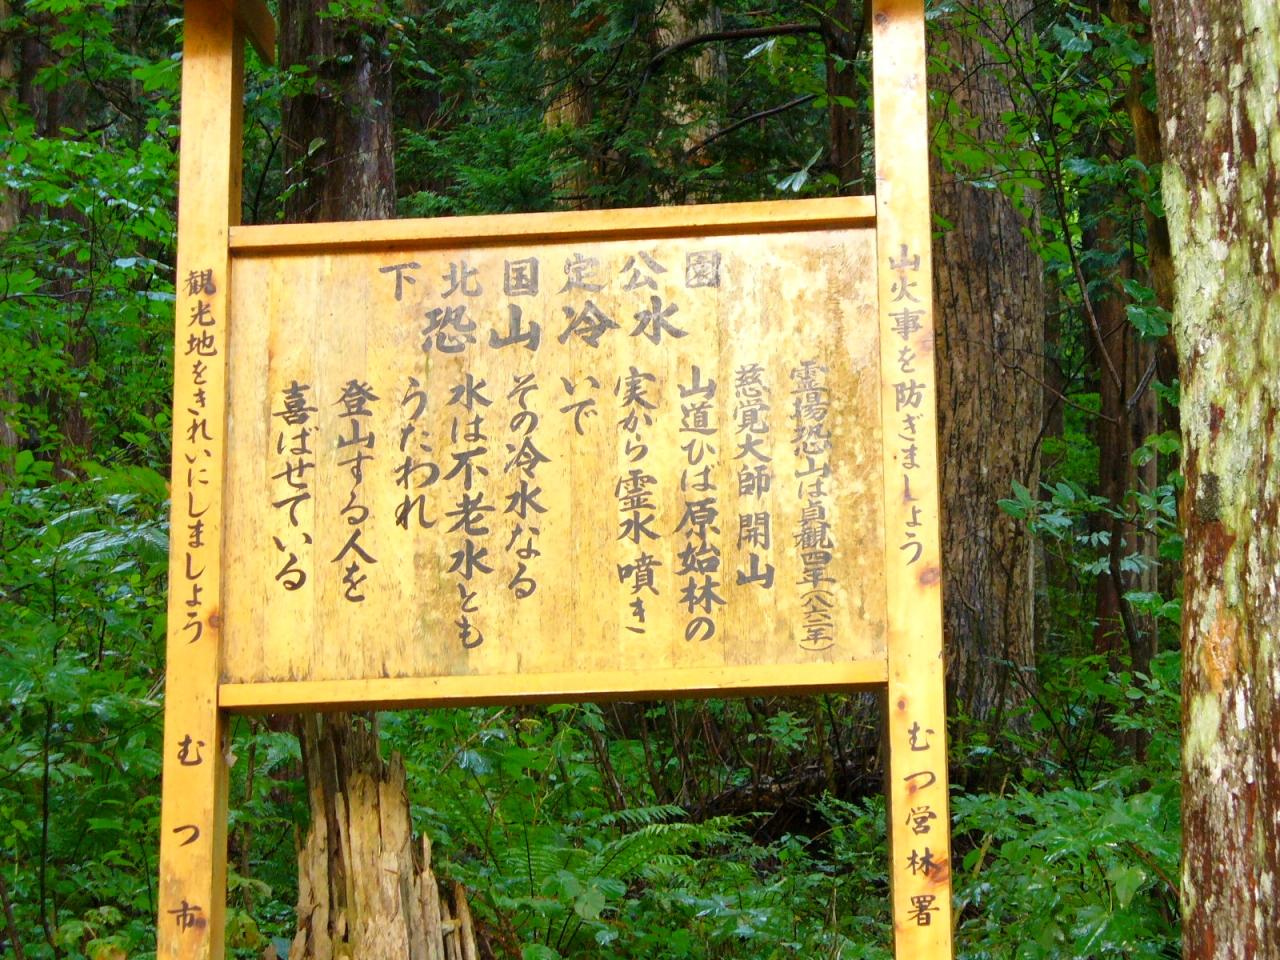 下北国定公園
恐山冷水
霊場恐山は貞観四年(八六二年)
慈覚大師開山
山道ひば原始林の
実から霊水噴き
いで
その冷水なる
水は不老水とも
うたわれ
登山する人を
喜ばせている
山火事を防ぎましょう
むつ営林署
観光地をきれいにしましょう
むつ市